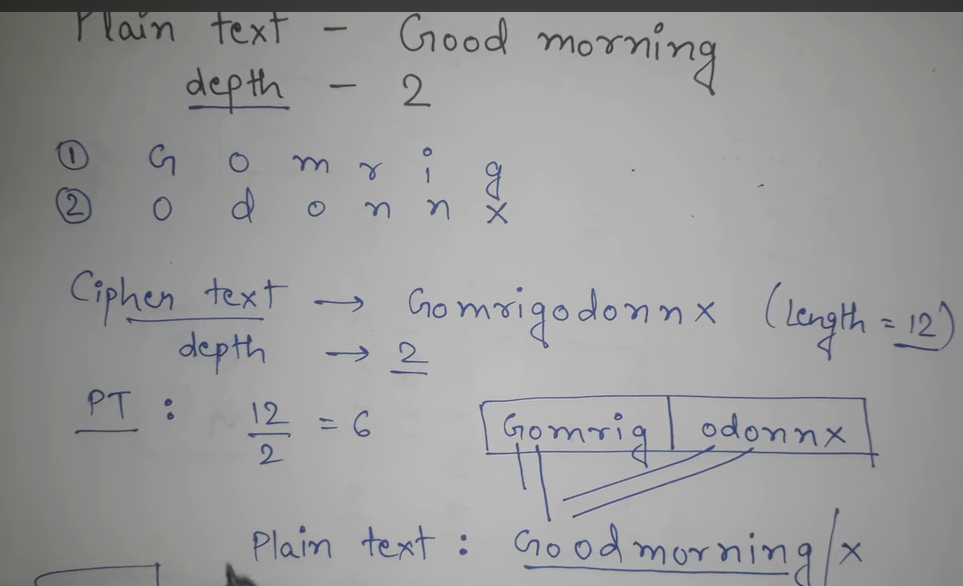 Plain text - Good morning
depth - 2
① G o m r i g
② o d o n n x
Ciphen text → Gomrigodonnx (length = 12)
depth → 2
PT : 12/2 = 6 Gomrig | odonnx
Plain text : Goodmorning/x